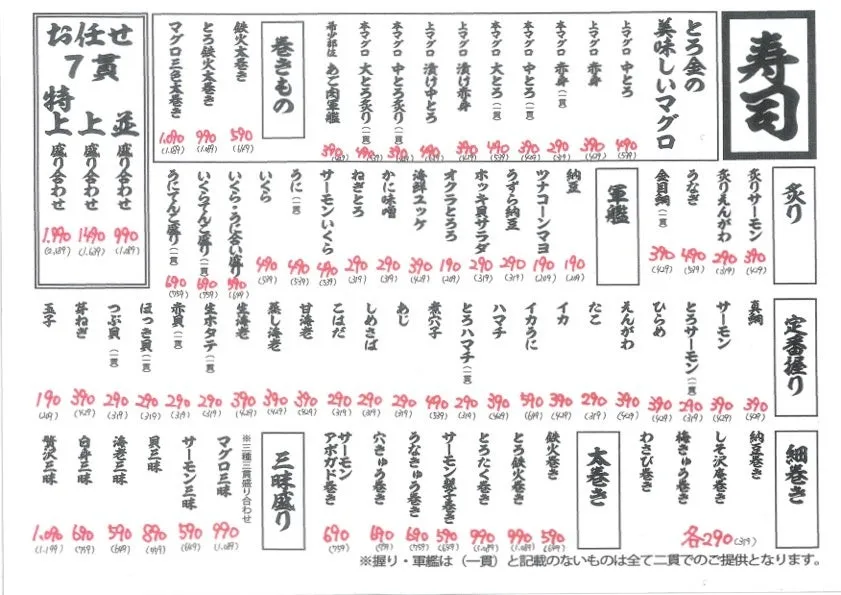 寿司
とろ金の
美味しいマグロ
上マグロ 中とろ 490 (539)
上マグロ 赤身 390 (429)
本マグロ 赤身(一貫) 290 (319)
本マグロ 中とろ(一貫) 390 (429)
本マグロ 大とろ(一貫) 490 (539)
上マグロ 漬け赤身 390 (429)
上マグロ 漬け中とろ 490 (539)
本マグロ 中とろ炙り(一貫) 390 (429)
本マグロ 大とろ炙り(一貫) 490 (539)
希少部位 あご肉軍艦 390 (429)
巻きもの
鉄火太巻き 590 (649)
とろ鉄火太巻き 990 (1.089)
マグロ三色太巻き 1.090 (1.189)
お任せ
7貫
並 盛り合わせ 990 (1.089)
上 盛り合わせ 1490 (1.639)
特上 盛り合わせ 1.990 (2.189)
炙り
炙りサーモン 390 (429)
炙りえんがわ 290 (319)
うなぎ 490 (539)
金目鯛(一貫) 390 (429)
軍艦
納豆 190 (209)
ツナコーンマヨ 190 (209)
うずら納豆 290 (319)
ホッキ貝サラダ 290 (319)
オクラとろろ 190 (209)
海鮮ユッケ 390 (429)
かに味噌 290 (319)
ねぎとろ 290 (319)
サーモンいくら 490 (539)
うに(一貫) 490 (539)
いくら 490 (539)
いくら・うに合い盛り 590 (649)
いくらてんこ盛り(一貫) 690 (759)
うにてんこ盛り(一貫) 690 (759)
定番握り
真鯛 390 (429)
サーモン 390 (429)
とろサーモン(一貫) 290 (319)
ひらめ 390 (429)
えんがわ 390 (429)
たこ 290 (319)
イカ 390 (429)
イカうに 590 (649)
ハマチ 390 (429)
とろハマチ(一貫) 290 (319)
煮穴子 490 (539)
あじ 290 (319)
しめさば 290 (319)
こはだ 290 (319)
甘海老 390 (429)
蒸し海老 390 (429)
生海老 390 (429)
生ホタテ(一貫) 290 (319)
赤貝(一貫) 290 (319)
ほっき貝(一貫) 290 (319)
つぶ貝(一貫) 290 (319)
芽ねぎ 390 (429)
玉子 190 (209)
細巻き
納豆巻き
しそ沢庵巻き
梅きゅう巻き
わさび巻き
各290 (319)
太巻き
鉄火巻き 590 (649)
とろ鉄火巻き 990 (1.089)
とろたく巻き 990 (1.089)
サーモン親子巻き 590 (649)
うなきゅう巻き 690 (759)
穴きゅう巻き 690 (759)
サーモンアボガド巻き 690 (759)
三昧盛り
※三種三貫盛り合わせ
マグロ三昧 990 (1.089)
サーモン三昧 590 (649)
貝三昧 890
海老三昧 590 (649)
白身三昧 690 (759)
贅沢三昧 1.090 (1.199)
※握り・軍艦は(一貫)と記載のないものは全て二貫でのご提供となります。